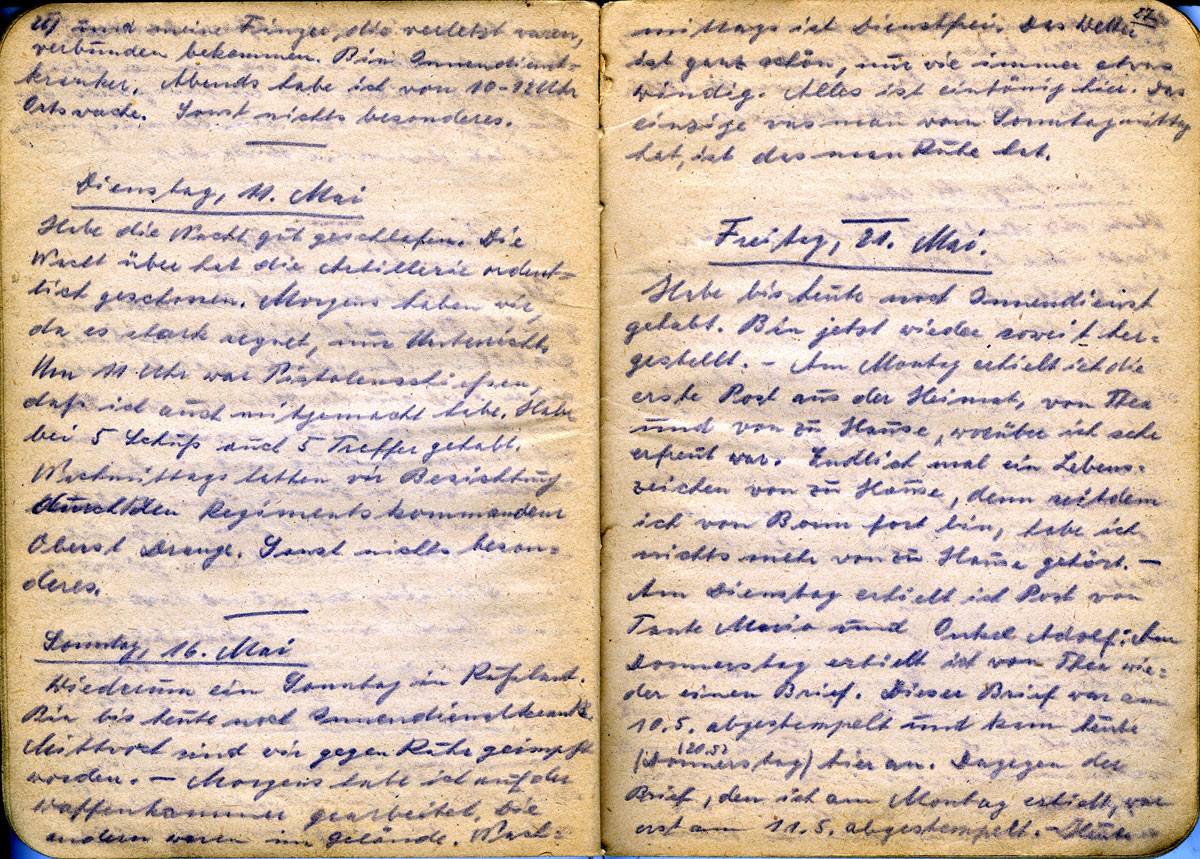 26) und meine Finger, die verletzt waren,
verbunden bekommen. Bin Innendienst-
kranker. Abends habe ich von 10-12 Uhr
Ortswache. Sonst nichts besonderes.
Dienstag, 11. Mai
Habe die Nacht gut geschlafen. Die
Nacht über hat die Artillerie ordent=
lich geschossen. Morgens haben wir,
da es stark regnet, nur Unterricht.
Um 11 Uhr war Pistolenschießen,
daß ich auch mitgemacht habe. Habe
bei 5 Schuß auch 5 Treffer gehabt.
Nachmittags hatten wir Besichtung
durch den Regimentskommandeur
Oberst Drange. Sonst nichts beson=
deres.
Sonntag, 16. Mai
Wiederum ein Sonntag in Rußland.
Bin bis heute noch Innendienstkrank.
Mittwoch sind wir gegen Ruhr geimpft
worden. — Morgens habe ich auf der
Waffenkammer gearbeitet, die
andern waren im Gelände. Nach=
27.
mittags ist Dienstfrei. Das Wetter
ist ganz schön, nur wie immer etwas
windig. Alles ist eintönig hier. Das
einzige was man vom Sonntagmittag
hat, ist das man Ruhe hat.
Freitag, 21. Mai.
Habe bis heute noch Innendienst
gehabt. Bin jetzt wieder soweit her=
gestellt. – Am Montag erhielt ich die
erste Post aus der Heimat, von Thea
und von zu Hause, worüber ich sehr
erfreut war. Endlich mal ein Lebens=
zeichen von zu Hause, denn seitdem
ich von Bonn fort bin, habe ich
nichts mehr von zu Hause gehört. —
Am Dienstag erhielt ich Post von
Tante Maria und Onkel Adolf. Am
Donnerstag erhielt ich von Thea wie=
der einen Brief. Dieser Brief war am
10.5. abgestempelt und kam heute
(20.5)
(Donnerstag) hier an. Dagegen der
Brief, den ich am Montag erhielt, war
erst am 11.5. abgestempelt. – Heute